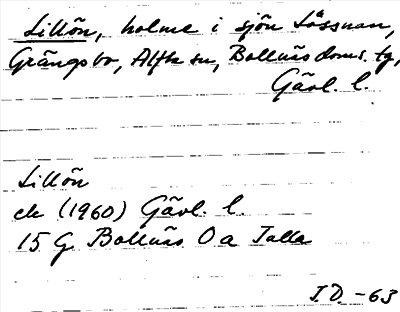 Lillön, holme i sjön Lössnan,
Grängsbo, Alfta sn, Bollnäs doms. tg,
Gävl. l.
Lillön
ek (1960) Gävl. l.
15 G Bollnäs O a Talla
I.D. -63